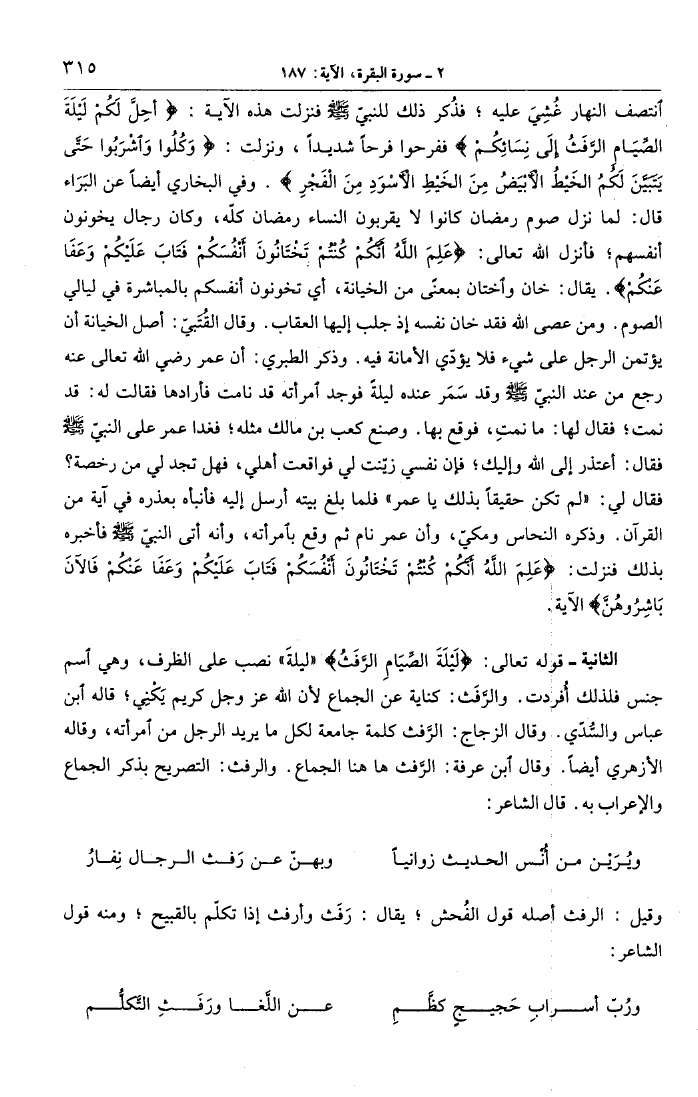 ٢ ـ سورة البقرة، الآية: ١٨٧
٣١٥
ٱنتصف النهار غُشِيَ عليه ؛ فذُكر ذلك للنبيّ ﷺ فنزلت هذه الآيـة : ﴿ أُحِلَّ لَكُمْ لَيْلَةَ
الصِّيَـامِ الرَّفَثُ إِلَى نِسَائِكُـمْ ﴾ ففرحوا فرحاً شديـداً ، ونزلت : ﴿ وَكُلُوا وَٱشْرَبُوا حَتَّى
يَتَبَيَّنَ لَكُمُ الْخَيْطُ الْأَبْيَضُ مِنَ الْخَيْطِ الْأَسْوَدِ مِنَ الْفَجْرِ ﴾ . وفي البخاري أيضاً عن البَرَاء
قال: لما نزل صوم رمضان كانوا لا يقربون النساء رمضان كلّه، وكان رجال يخونون
أنفسهم؛ فأنزل الله تعالى: ﴿عَلِمَ اللَّهُ أَنَّكُمْ كُنْتُمْ تَخْتَانُونَ أَنْفُسَكُمْ فَتَابَ عَلَيْكُمْ وَعَفَا
عَنْكُمْ﴾. يقال: خان وٱختان بمعنًى من الخيانة، أي تخونون أنفسكم بالمباشرة في ليالي
الصوم. ومن عصى الله فقد خان نفسه إذ جلب إليها العقاب. وقال القُتَبيّ: أصل الخيانة أن
يؤتمن الرجل على شيء فلا يؤدّي الأمانة فيه. وذكر الطبري: أن عمر رضي الله تعالى عنه
رجع من عند النبيّ ﷺ وقد سَمَر عنده ليلةً فوجد ٱمرأته قد نامت فأرادها فقالت له: قد
نمت؛ فقال لها: ما نمتِ، فوقع بها. وصنع كعب بن مالك مثله؛ فغدا عمر على النبيّ ﷺ
فقال: أعتذر إلى الله وإليك؛ فإن نفسي زيّنت لي فواقعت أهلي، فهل تجد لي من رخصة؟
فقال لي: «لم تكن حقيقاً بذلك يا عمر» فلما بلغ بيته أرسل إليه فأنبأه بعذره في آية من
القرآن. وذكره النحاس ومكيّ، وأن عمر نام ثم وقع بٱمرأته، وأنه أتى النبيّ ﷺ فأخبره
بذلك فنزلت: ﴿عَلِمَ اللَّهُ أَنَّكُمْ كُنْتُمْ تَخْتَانُونَ أَنْفُسَكُمْ فَتَابَ عَلَيْكُمْ وَعَفَا عَنْكُمْ فَالآنَ
بَاشِرُوهُنَّ﴾ الآية.
الثانية ـ قوله تعالى: ﴿لَيْلَةَ الصِّيَامِ الرَّفَثُ﴾ «ليلةَ» نصب على الظرف، وهي ٱسم
جنس فلذلك أُفردت. والرَّفَث: كناية عن الجماع لأن الله عز وجل كريم يَكْنِي؛ قاله ٱبن
عباس والسُّدّي. وقال الزجاج: الرَّفث كلمة جامعة لكل ما يريد الرجل من ٱمرأته، وقاله
الأزهري أيضاً. وقال ٱبن عرفة: الرَّفث ها هنا الجماع. والرفث: التصريح بذكر الجماع
والإعراب به. قال الشاعر:
ويُـرَيْـن مـن أُنْـس الحديث زوانيـاً وبهـنّ عـن رَفـث الـرجـال نِفـارُ
وقيل : الرفث أصله قول الفُحش ؛ يقال : رَفَث وأرفث إذا تكلّم بالقبيح ؛ ومنه قول
الشاعر:
ورُبّ أســرابِ حَجيـجٍ كظَّـمِ عـن اللَّغـا ورَفَـثِ التَّكلُّـم